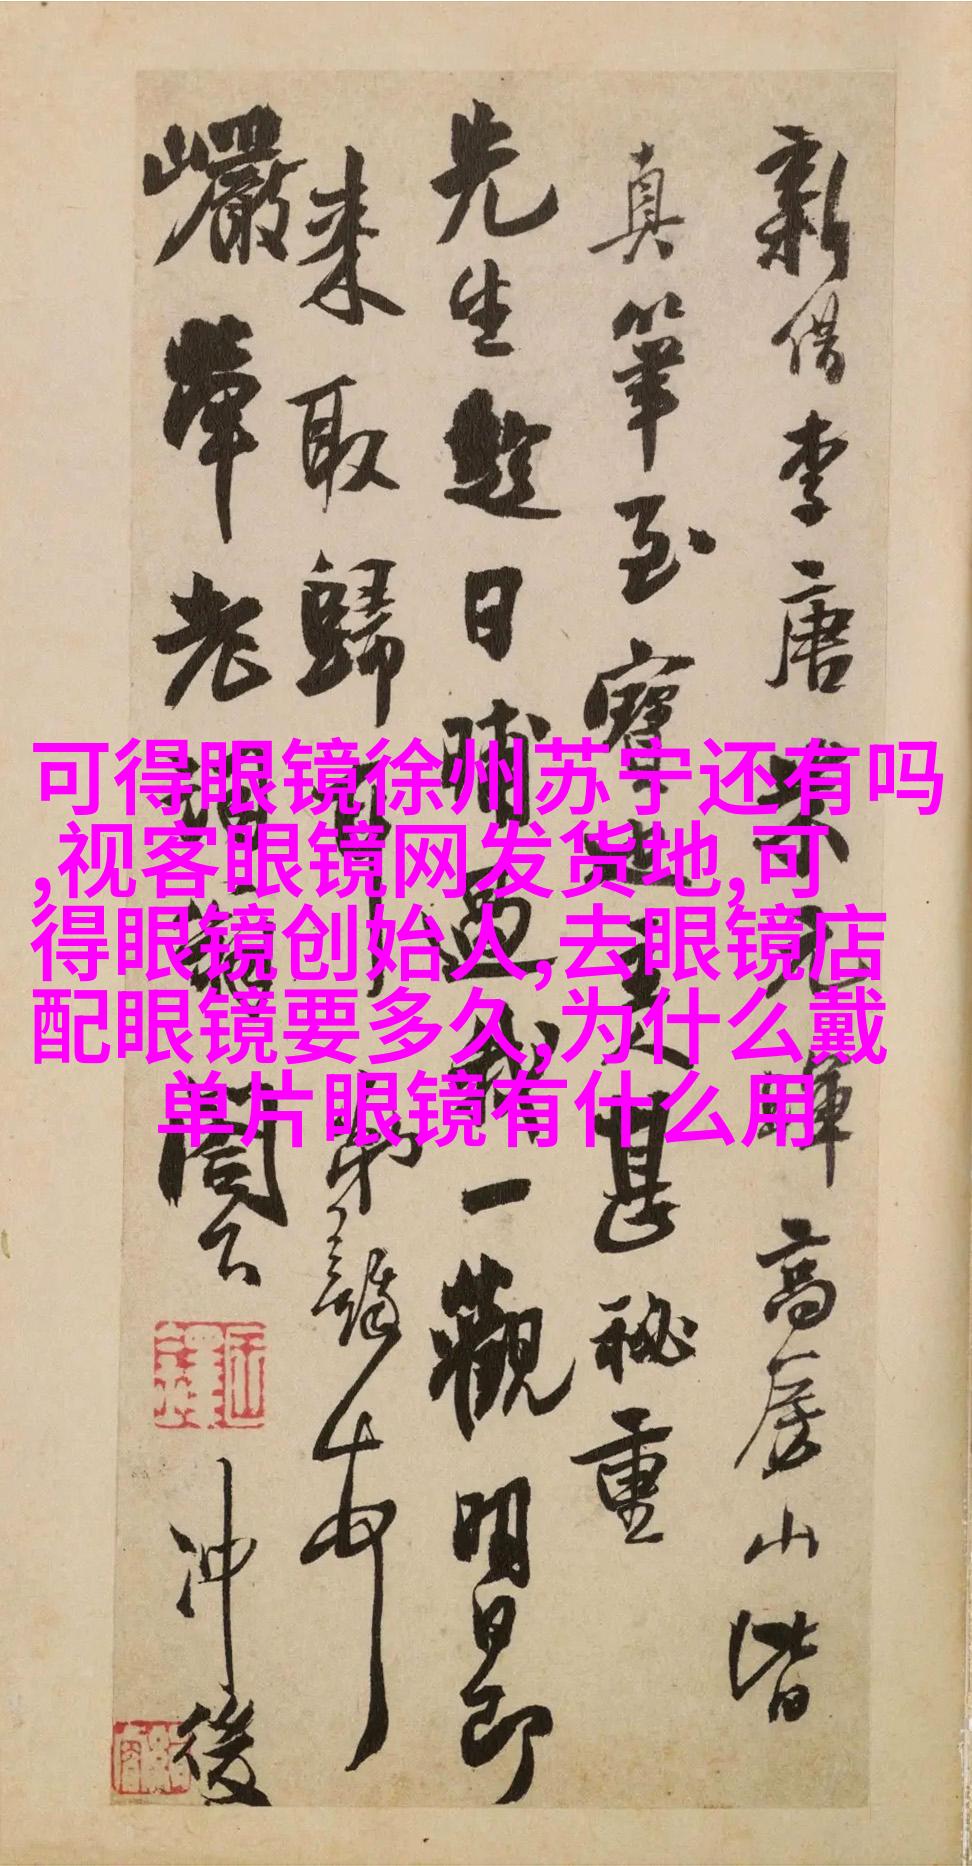 新借李唐米元暉高房山皆
真筆至寶也主人甚秘重
先生趁日晴過我一觀明日即
来取歸
巖犖老
閣下
冲後
可得眼镜徐州苏宁还有吗
,视客眼镜网发货地,可
得眼镜创始人,去眼镜店
配眼镜要多久,为什么戴
单片眼镜有什么用